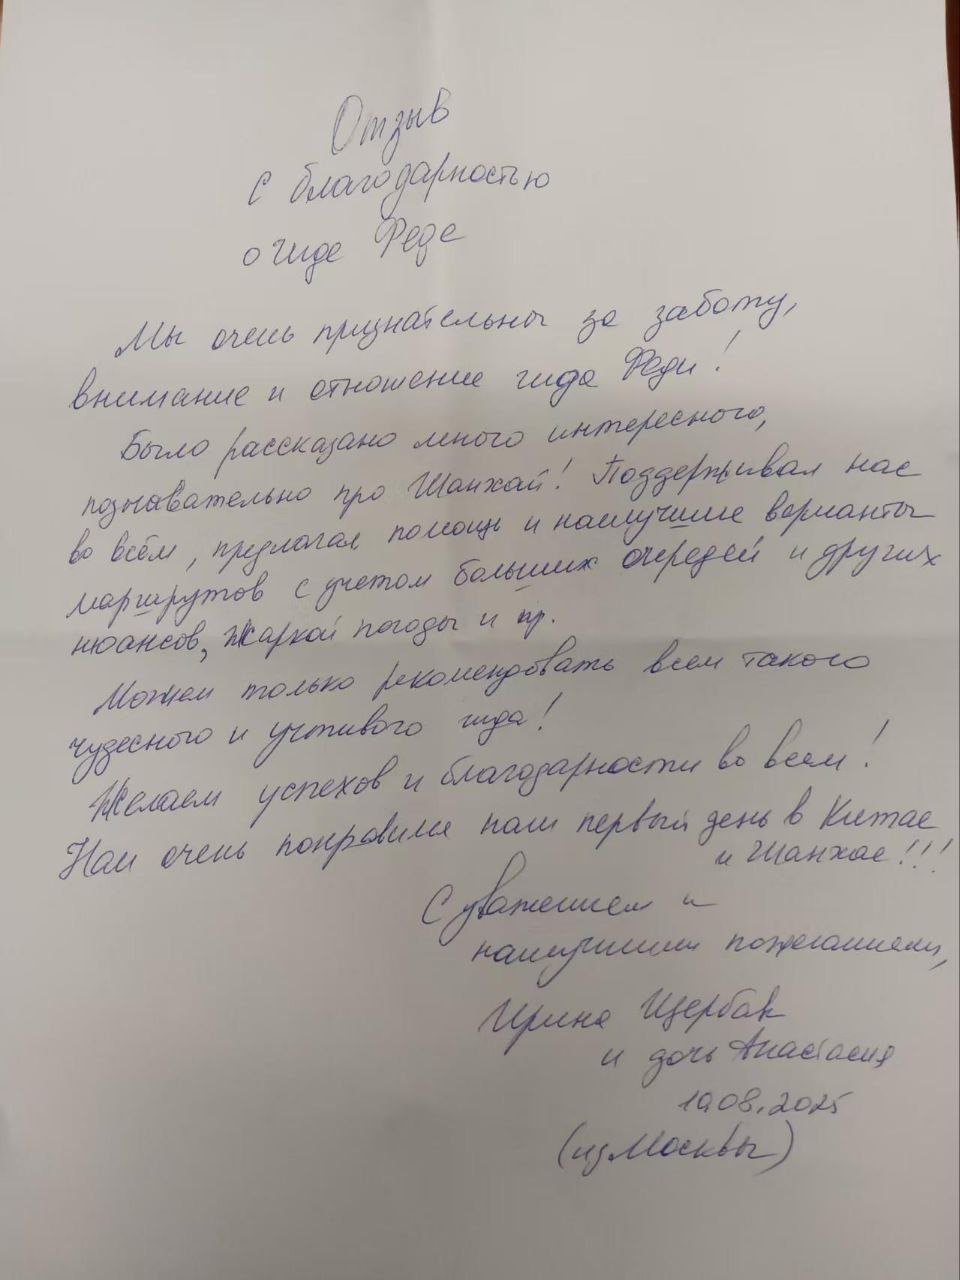 Отзыв
с благодарностью
о гиде Феде
Мы очень признательны за заботу,
внимание и отношение гида Феди!
Было рассказано много интересного,
познавательно про Шанхай! Поддерживал нас
во всём, предлагал помощь и наилучшие варианты
маршрутов с учетом больших очередей и других
нюансов, жаркой погоды и пр.
Можем только рекомендовать всем такого
чудесного и учтивого гида!
Желаем успехов и благодарности во всем!
Нам очень понравился наш первый день в Китае
и Шанхае!!!
С уважением и
наилучшими пожеланиями,
Ирина Щербак
и дочь Анастасия
19.08.2025
(из Москвы)